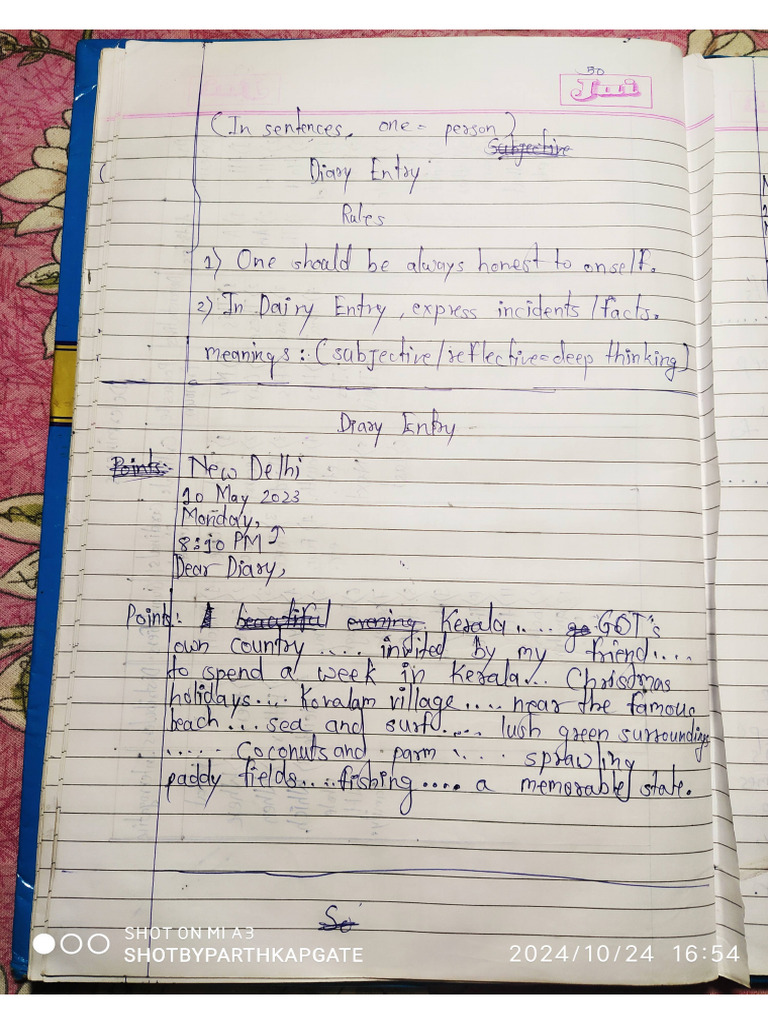 30
Jui
(In sentences, one = person)
Subjective
Diary Entry
Rules
1) One should be always honest to onself.
2) In Dairy Entry, express incidents/facts.
meanings: (subjective/reflective=deep thinking)
Diary Entry
Points: New Delhi
10 May 2023
Monday,
8:10 PM
Dear Diary,
Points: A beautiful evening Kerala.... go GOT's
own country .... invited by my friend....
to spend a week in Kerala... Christmas
holidays.... Kovalam village .... near the famous
beach... sea and surf.... lush green surroundings
...... Coconuts and parm .... sprawling
paddy fields....fishing.... a memorable state.
So
SHOT ON MI A3
SHOTBYPARTHKAPGATE
2024/10/24 16:54